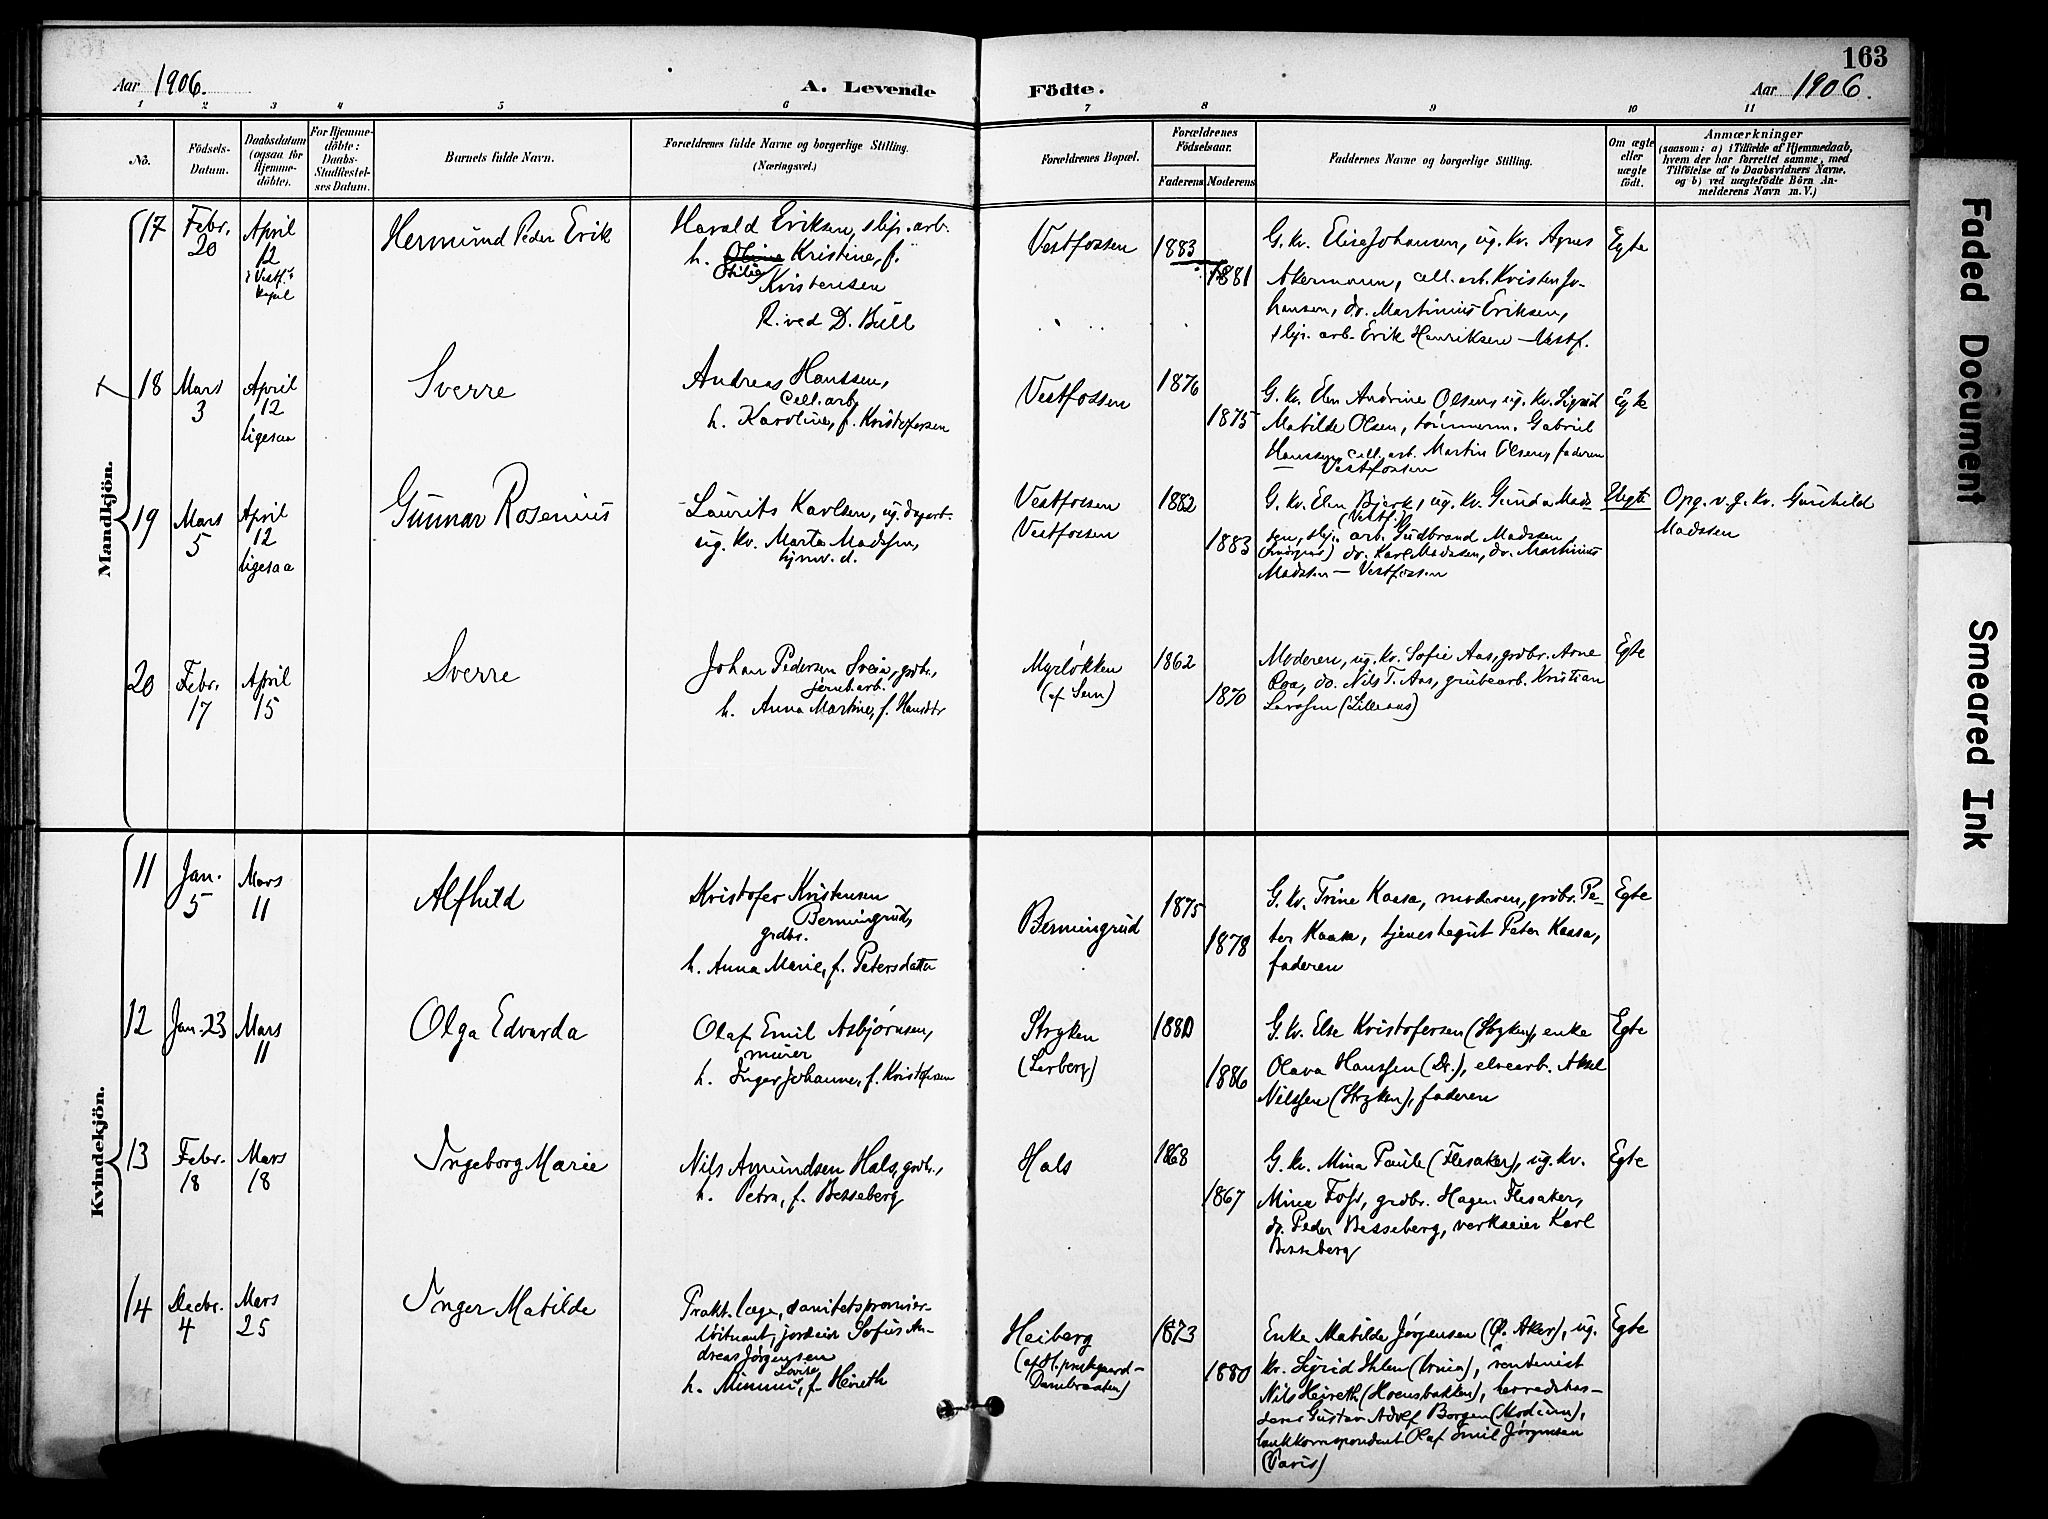 163
Aar 1906.
A. Levende Födte.
Aar 1906.
1 2 3 4 5 6 7 8 9 10 11
No.
Födsels-Datum.
Daabsdatum (ogsaa for Hjemme-döbte).
For Hjemme-döbte: Daabs-Stadfæstel-ses Datum.
Barnets fulde Navn.
Forældrenes fulde Navne og borgerlige Stilling. (Næringsvei.)
Forældrenes Bopæl.
Forældrenes Födselsaar.
Faderens
Moderens
Faddernes Navne og borgerlige Stilling.
Om ægte eller uægte födt.
Anmærkninger
(saasom: a) i Tilfælde af Hjemmedaab,
hvem der har forrettet samme, med
Tilföielse af to Daabsvidners Navne,
og b) ved uægtefödte Börn An-
melderens Navn m. V.)
Mandkjön.
17
Febr. 20
April 12
i Vestf.
Hermund Peder Erik
Harald Eriksen, slip. arb.
h. Oline Kristine, f.
Otilie
Kristensen
R. ved D. Bull
Vestfossen
1883
1881
G. kv. Elise Johansen, ug. kv. Agnes
Akermann, cell. arb. Kristen Jo-
hansen, do. Martinius Eriksen,
slip. arb. Erik Henriksen — Vestf.
Egte
18
Mars 3
April 12
ligesaa
Sverre
Andreas Hanssen,
cell. arb.
h. Karoline, f. Kristofersen
Vestfossen
1876
1875
G. kv. Elen Andrine Olsen, ug. kv. Sigrid
Matilde Olsen, tömmerm. Gabriel
Hanssen, cell. arb. Martin Olsen, faderen
— Vestfossen
Egte
19
Mars 5
April 12
ligesaa
Gunnar Rosenius
Laurits Karlsen, ug. dagarb.
ug. kv. Marta Madssen,
hjmv. d.
Vestfossen
Vestfossen
1882
1883
G. kv. Elen Bjerk, ug. kv. Gunda Mads-
(Vestf.)
sen, slip. arb. Gudbrand Madssen
do. Karl Madssen, do. Martinius
Madssen — Vestfossen
Uegte
Opg. v. g. kv. Gunhild
Madssen
20
Febr. 17
April 15
Sverre
Johan Pedersen Sveia, grdbr.,
jernb. arb.
h. Anna Martine, f. Hansdtr
Myrløkken
(af Sem)
1862
1870
Moderen, ug. kv. Sofie Aas, grdbr. Arne
Roa, do. Nils T. Aas, grubearb. Kristian
Larssen (Lilleaas)
Egte
Kvindekjön.
11
Jan. 5
Mars 11
Alfhild
Kristofer Kristensen
Bermingrud,
grdbr.
h. Anna Marie, f. Petersdatter
Bermingrud
1875
1878
G. kv. Trine Kaasa, moderen, grdbr. Pe-
ter Kaasa, tjenestegut Peter Kaasa,
faderen
Egte
12
Jan. 23
Mars 11
Olga Edvarda
Olaf Emil Asbjørnsen,
murer
h. Inger Johanne, f. Kristofersen
Stryken
(Lerberg)
1880
1886
G. kv. Else Kristofersen (Stryken), enke
Olava Hanssen (Dr.), elvearb. Aksel
Nilssen (Stryken), faderen
Egte
13
Febr. 18
Mars 18
Ingeborg Marie
Nils Amundsen Hals, grdbr.,
h. Petra, f. Besseberg
Hals
1868
1867
G. kv. Mina Paule (Flesaker), ug. kv.
Mina Foss, grdbr. Hagen Flesaker,
do. Peder Besseberg, verkseier Karl
Besseberg
Egte
14
Decbr. 4
Mars 25
Inger Matilde
Prakt. læge, sanitetspremier-
løitnant, jordeier Sofus An-
dreas Jørgensen
Lovise
h. Mimmi, f. Heireth
Heiberg
(af H. prestegaard -
Dambraaten)
1873
1880
Enke Matilde Jørgensen (Ø. Aker), ug.
kv. Sigrid Ihlen (Kr.nia), rentenist
Nils Heireth (Hoensbakken), herredskas-
serer Gustav Adolf Borgen (Modum),
bankkorrespondent Olaf Emil Jørgensen
(Paris)
Egte
Faded Document
Smeared Ink